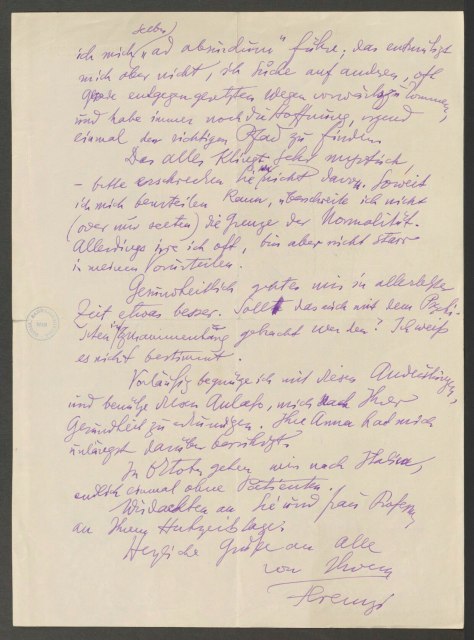 selbst
ich mich "ad absurdum" führe; das entmutigt
mich aber nicht, ich suche auf andren, oft
gerade entgegengesetzten Wegen vorwärtszukommen,
und habe immer noch die Hoffnung, irgend
einmal den richtigen Pfad zu finden.
Das alles klingt sehr mystisch,
– bitte erschrecken Sie nicht davor. Soweit
ich mich beurteilen kann, überschreite ich nicht
(oder nur selten) die Grenze der Normalität.
Allerdings irre ich oft, bin aber nicht starr
in meinen Vorurteilen.
Gesundheitlich geht es mir in allerletzter
Zeit etwas besser. Sollte das auch mit dem
Zusammenhang gebracht werden? Ich weiss
es nicht bestimmt.
Vorläufig begnüge ich mich mit diesen Andeutungen,
und benütze den Anlass, mich nach Ihrer
Gesundheit zu erkundigen. Ihre Anna hat mich
unlängst darüber beruhigt.
Im Oktober gehen wir nach Italien,
endlich einmal ohne Patienten.
Wir dachten an Sie und Frau Professor
an Ihrem Hochzeitstage.
Herzliche Grüße an Alle
von Ihrem
Ferenczi